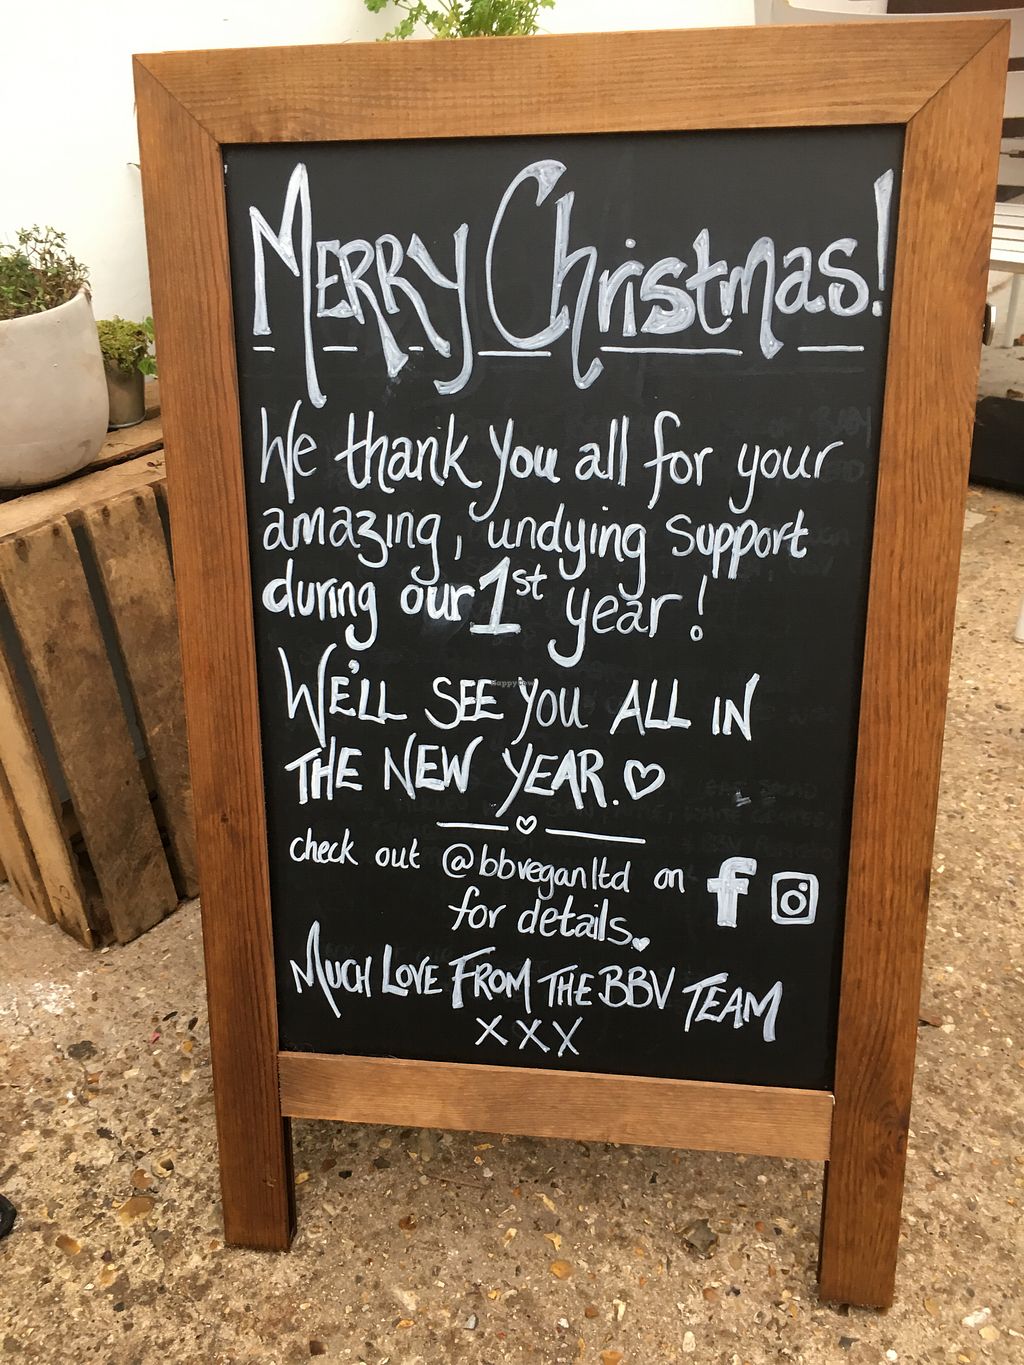 Merry Christmas!
We thank you all for your
amazing, undying support
during our 1st year!
WE'LL SEE YOU ALL IN
THE NEW YEAR. ♡
check out @bbveganltd on f
for details.
MUCH LOVE FROM THE BBV TEAM
XXX
HappyCow